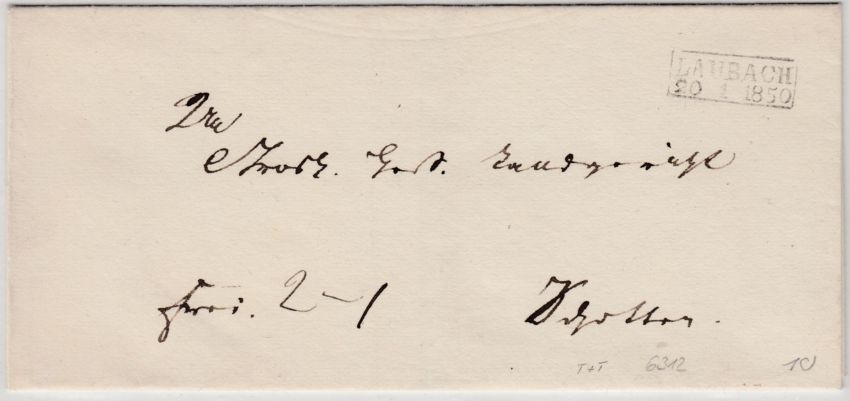 LAUBACH
20 1 1850
An
Grosh. Hess. Landgericht
frei. 2-1
Schotten.
T+T 6312 10